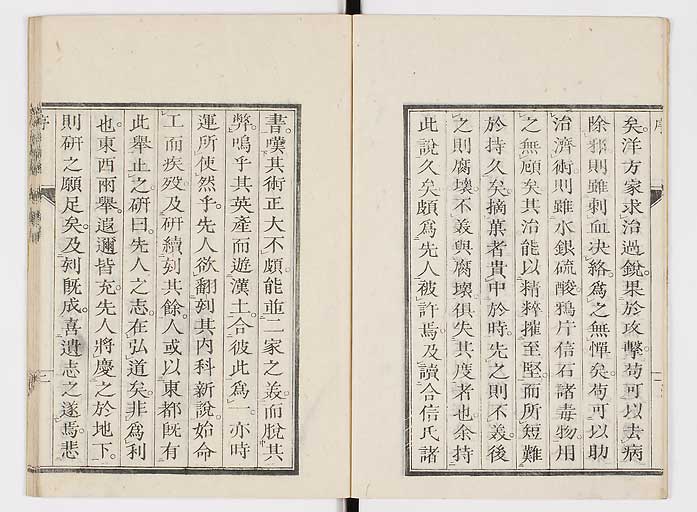 矣。洋方家求治過銳。果於攻擊。苟可以去病
除邪。則雖刺血決絡。為之無憚矣。苟可以助
治濟術。則雖水銀硫酸鴉片信石諸毒物。用
之無顧矣。其治能以精粹摧至堅。而所短難
於持久矣。摘菓者貴中於時。先之則不義。後
之則腐壞。不義與腐壞。俱失其度者也。余持
此說久矣。頗為先人被許焉。及讀合信氏諸
序
書。嘆其術正大不頗。能並二家之義。而脫其
弊。嗚乎其英產而遊漢土。合彼此為一。亦時
運所使然乎。先人欲翻刻其內科新說。始命
工而疾歿。及研續刻其餘。人或以東都既有
此舉止之。研曰。先人之志。在弘道矣。非為利
也。東西兩舉。遐邇皆充。先人將慶之於地下。
則研之願足矣。及刻既成。喜遺志之遂焉。悲
序
二